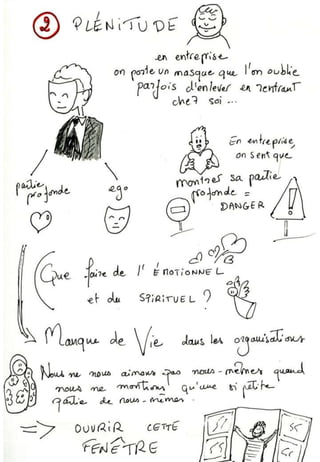 2 PLÉNITUDE
en entreprise
on porte un masque que l'on oublie
parfois d'enlever en rentrant
chez soi ...
En entreprise,
on sent que
montrer sa partie
profonde =
DANGER
partie profonde
ego
Que faire de l'ÉMOTIONNEL
et du SPIRITUEL ?
Manque de Vie dans les organisations
Nous ne nous aimons pas nous-mêmes quand
nous ne montrons qu'une si petite
partie de nous-mêmes.
=> OUVRIR CETTE
FENÊTRE